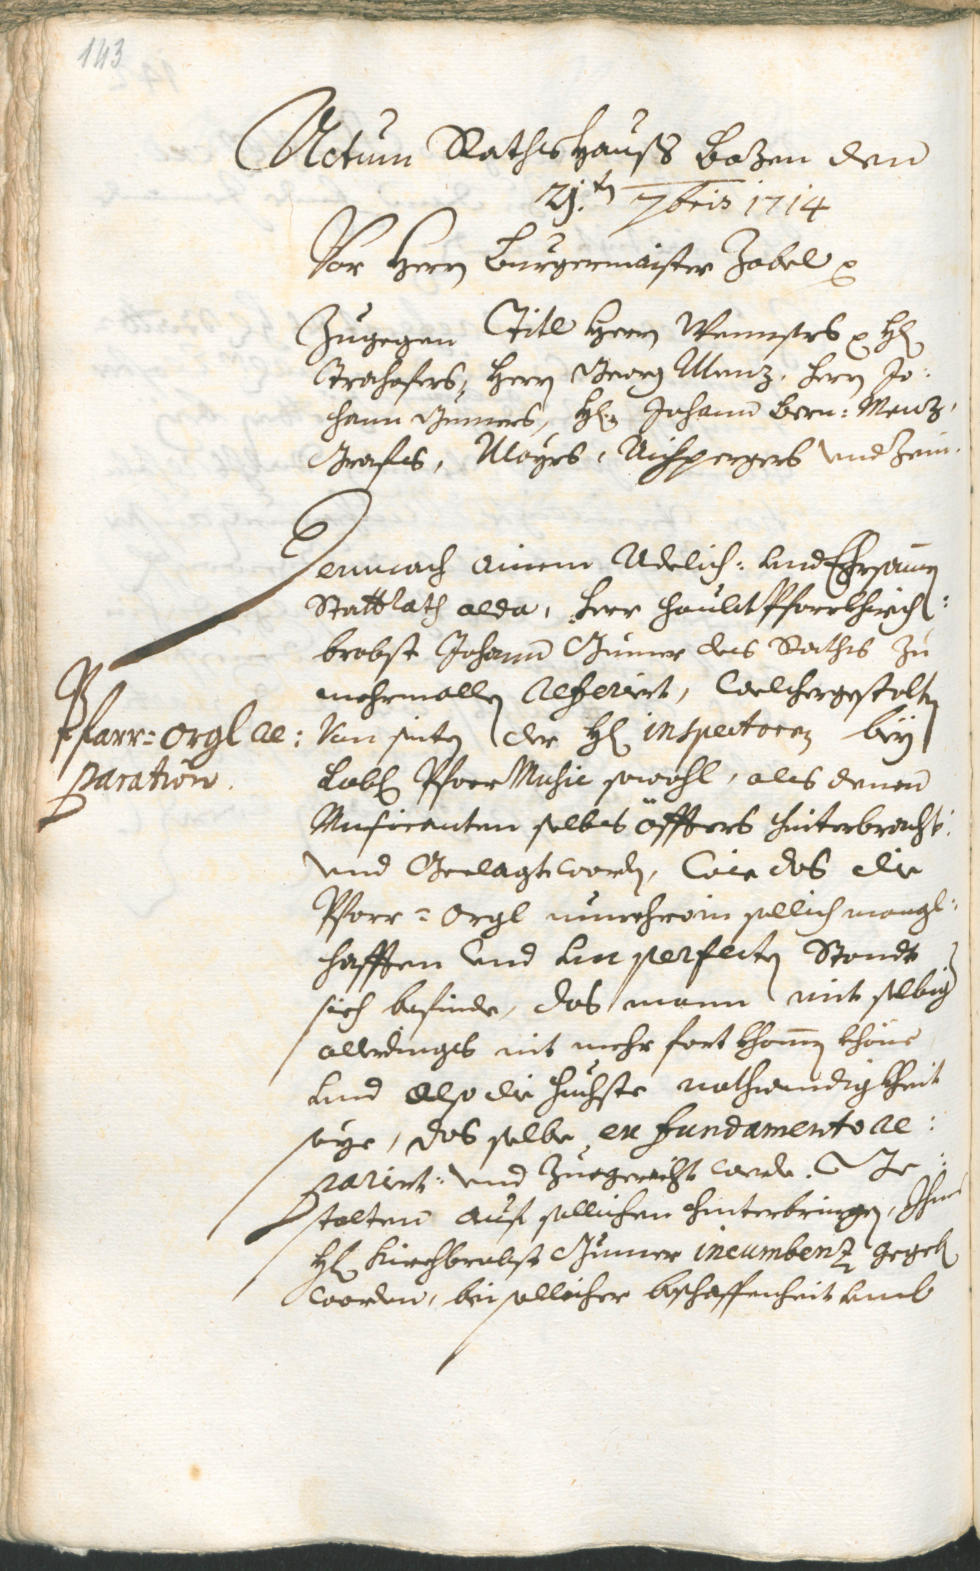 143
Actum Rathshauß Bozen den
21.ten 7bris 1714
Vor Herrn Burgermaister Zobel
Zugegen Titl Herrn Wenusers Hl
Strohofers, Herrn Georg Menz, Herrn Jo:
hann Gumers, Hl. Johann Bern: Menz,
Grafls, Mayrs, Aichpergers vnd Zein.
Demnach ainem Adelich: vnd Ehrsamen
Stattrath alda, Herr Pfarrkhirch:
brobst Johann Gumer des Raths zu
mehrmallen referiert, welchergestalten
Von seiten der Hl inspectoren bey
Lobl Pfarr Music sowohl, als denen
Musicanten selbs öffters hinterbracht:
vnd Geclagt worden, wie das die
Pfarr=orgl nunmehro in sollich mangl:
hafften vnd imperfecten Standt
sich befinde, das mann mit selbig
allerdings nit mehr fort khomen khöne
vnd also die höchste nothwendigkheit
seye, das selbe ex fundamento re:
pariert: vnd zuegericht werde. Ge:
stalten auf sollichen hinterbringen, Ihme
Hl Kirchbrobst Gumer incumbenz gegeben
worden, bei sollicher beschaffenheit vmb
Pfarr=orgl re:
paration.